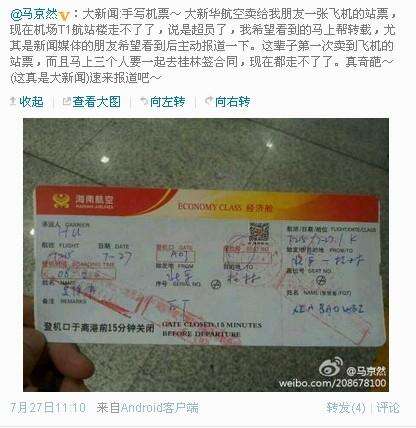 @马京然：大新闻:手写机票～ 大新华航空卖给我朋友一张飞机的站票，
现在机场T1航站楼走不了了，说是超员了，我希望看到的马上帮转载，尤
其是新闻媒体的朋友希望看到后主动报道一下。这辈子第一次卖到飞机的
站票，而且马上三个人要一起去桂林签合同，现在都走不了了。真奇葩～
(这真是大新闻)速来报道吧～
收起 查看大图 向左转 向右转
海南航空
HAINAN AIRLINES
ECONOMY CLASS 经济舱
承运人 CARRIER
HU
航班 FLIGHT
日期 DATE
7-27
登机口 GATE
登机时间 BOARDING TIME
始发地 FROM
目的地 TO
姓名 NAME
序号 SERIAL NO.
备注 REMARKS
登机口于离港前15分钟关闭
GATE CLOSED 15 MINUTES
BEFORE DEPARTURE
航班/日期/舱位 FLIGHT/DATE/CLASS
座位号 SEAT NO.
@马京然
weibo.com/208678100
7月27日11:10 来自Android客户端
转发(4) 评论